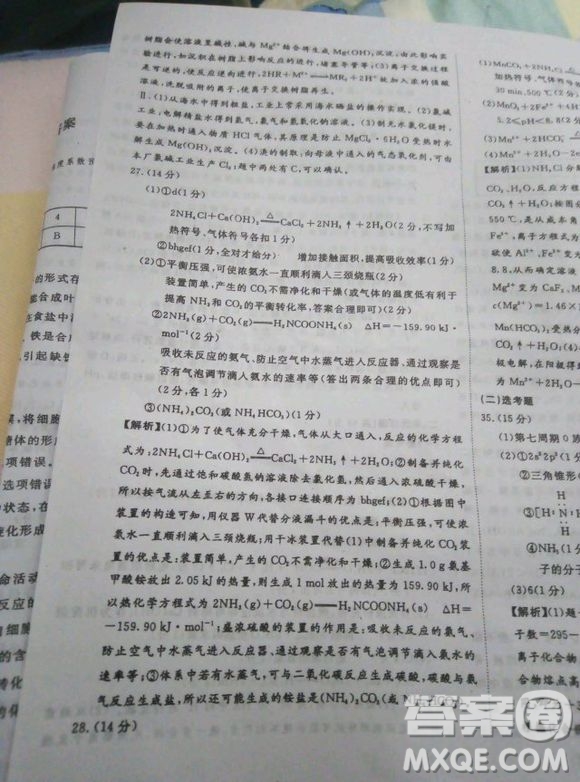 树脂会使溶液呈碱性,碱与 Mg²⁺ 结合将生成 Mg(OH)₂ 沉淀,由此影响实
验进行,如沉积在树脂上影响反应的进行、堵塞导管等;(3)离子交换过程
是可逆的,使反应逆向进行,2HR+M²⁺⇌MR₂+2H⁺ 能加入浓的强酸
溶液,洗脱吸附的离子,使离子交换树脂再生。
Ⅱ.(1)从海水中得到粗盐,工业上常采用海水晒盐的操作实现。(2)氯碱
工业,电解精盐水得到氯气,氢气和氢氧化钠溶液。(3)制无水氯化镁时,
要在加热时通入物质 HCl 气体,其原因是防止 MgCl₂·6H₂O 受热时水
解生成 Mg(OH)₂ 沉淀。(4)溴的制取,向母液中通入的气态氧化剂,可由
本厂氯碱工业生产 Cl₂;题中两处有 C,可填入。
27.(14 分)
(1)①d(1 分)
2NH₄Cl+Ca(OH)₂ △ CaCl₂+2NH₃↑+2H₂O(2 分,不写加
热符号、气体符号各扣 1 分)
②bhgef(1 分,全对才给分) 增加接触面积,提高吸收效率(1 分)
(2)①平衡压强,可使浓氨水一直顺利滴入三颈烧瓶(2 分)
装置简单,产生的 CO₂ 不需净化和干燥(或气体的温度低有利于
提高 NH₃ 和 CO₂ 的平衡转化率,答案合理即可)(2 分)
②2NH₃(g)+CO₂(g)⇌H₂NCOONH₄(s) ΔH=-159.90 kJ·
mol⁻¹(2 分)
吸收未反应的氨气、防止空气中水蒸气进入反应器、通过观察是
否有气泡调节滴入氨水的速率等(答出两条合理的优点即可)
(2 分,各 1 分)
③(NH₄)₂CO₃(或 NH₄HCO₃)(1 分)
【解析】(1)①为了使气体充分干燥,气体从大口通入,反应的化学方程
式为:2NH₄Cl+Ca(OH)₂ △ CaCl₂+2NH₃↑+2H₂O;②制备并纯化
CO₂ 时,先通过饱和碳酸氢钠溶液除去氯化氢,然后进入浓硫酸干燥,
所以按气流从左至右的方向,各接口连接顺序为 bhgef;(2)①根据图中
装置的构造可知,用仪器 W 代替分液漏斗的优点是:平衡压强,可使浓
氨水一直顺利滴入三颈烧瓶;用干冰装置代替(1)中制备并纯化 CO₂ 装
置的优点是:装置简单,产生的 CO₂ 不需净化和干燥;②生成 1.0 g 氨基
甲酸铵放出 2.05 kJ 的热量,则生成 1 mol 放出的热量为 159.90 kJ,所
以热化学方程式为 2NH₃(g)+CO₂(g)⇌H₂NCOONH₄(s) ΔH=
-159.90 kJ·mol⁻¹;盛浓硫酸的装置的作用是:吸收未反应的氨气、
防止空气中水蒸气进入反应器、通过观察是否有气泡调节滴入氨水的
速率等;③体系中若有水蒸气,可与二氧化碳反应生成碳酸,碳酸与氨
气反应生成盐,所以还可能生成的铵盐是(NH₄)₂CO₃(或
28.(14 分)
答案
4
B
的形式存
能合成叶
在食盐中
铁是合成
引起缺铁
将细胞
糖体的形成
选项错误。
项错误
种状态,在
化形成
命活动
反应的
和细胞
的含
转化
(1)MnCO₃+2NH₄C
加热符号、气体符号各
30 min,500 ℃(2 分)
(2)MnO₂+2Fe²⁺+4H
5.2≤pH<8.8(2 分
(3)Mn²⁺+2HCO₃⁻
(4)Mn²⁺+2H₂O
【解析】(1)根据图
CO₂,反应方程
550 ℃,是从成本角
Fe³⁺,离子方程式为
欲使 Al³⁺、Fe³⁺
8.8,从而确定溶液
Mg²⁺ 变为
Mg²⁺ 变为 CaF₂
c(Mg²⁺)=1.46×1
Mn(HCO₃)₂,受热
极电解,在阳极得到
为 Mn²⁺+2H₂O
(二)选考题
35.(15 分)
(1)第七周期 0 族
(2)②三角锥形(
③[H∶N∶H
④NH₃(1 分
子的分子
(3)6(1 分)
【解析】(1)题
子数=295-
离子化合物
合物熔点高
答案圈
MXQE.COM